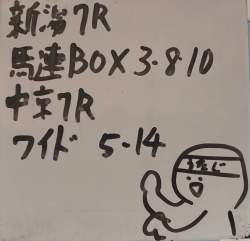 新潟7R
馬連BOX 3・8・10
中京7R
ワイド 5-14
うなじ